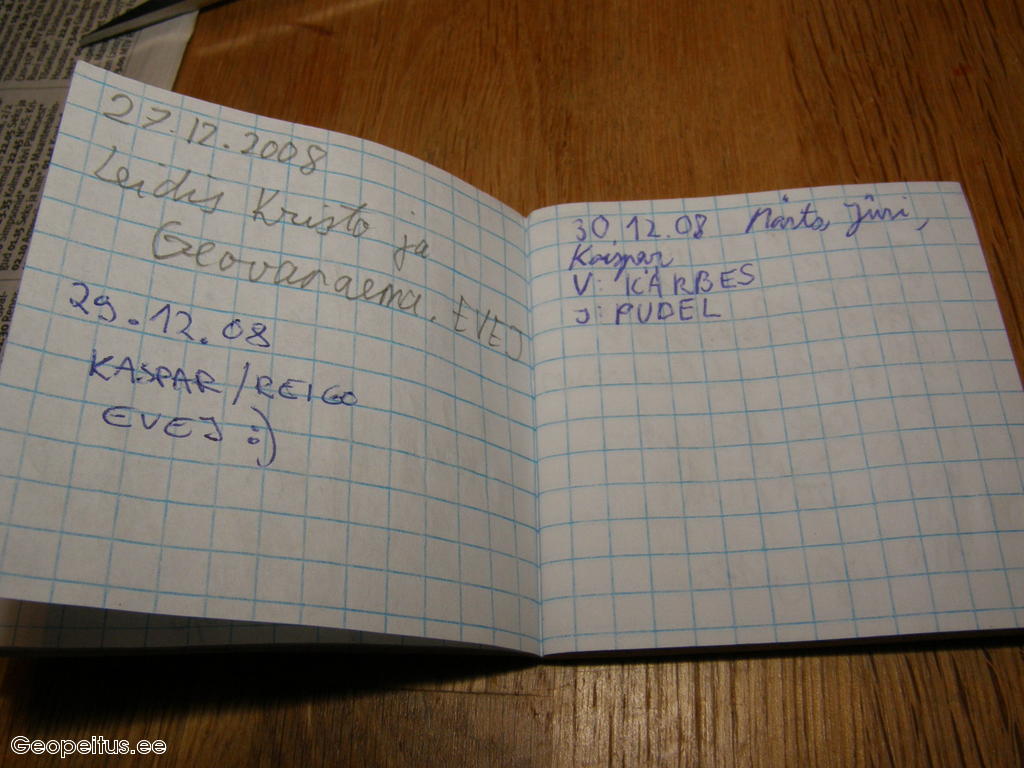 27.12.2008
Leidis Kristo ja
Geovanaema. EVEJ
29.12.08
KASPAR/REIGO
EVEJ :)
30.12.08 Märto, Jüri,
Kaspar
V: KÄRBES
J: PUDEL
Geopeitus.ee